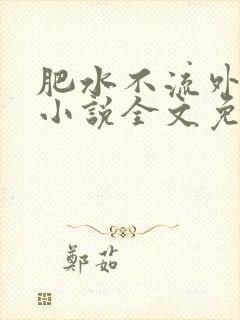 肥水不流外
小说全文免
鄭茹